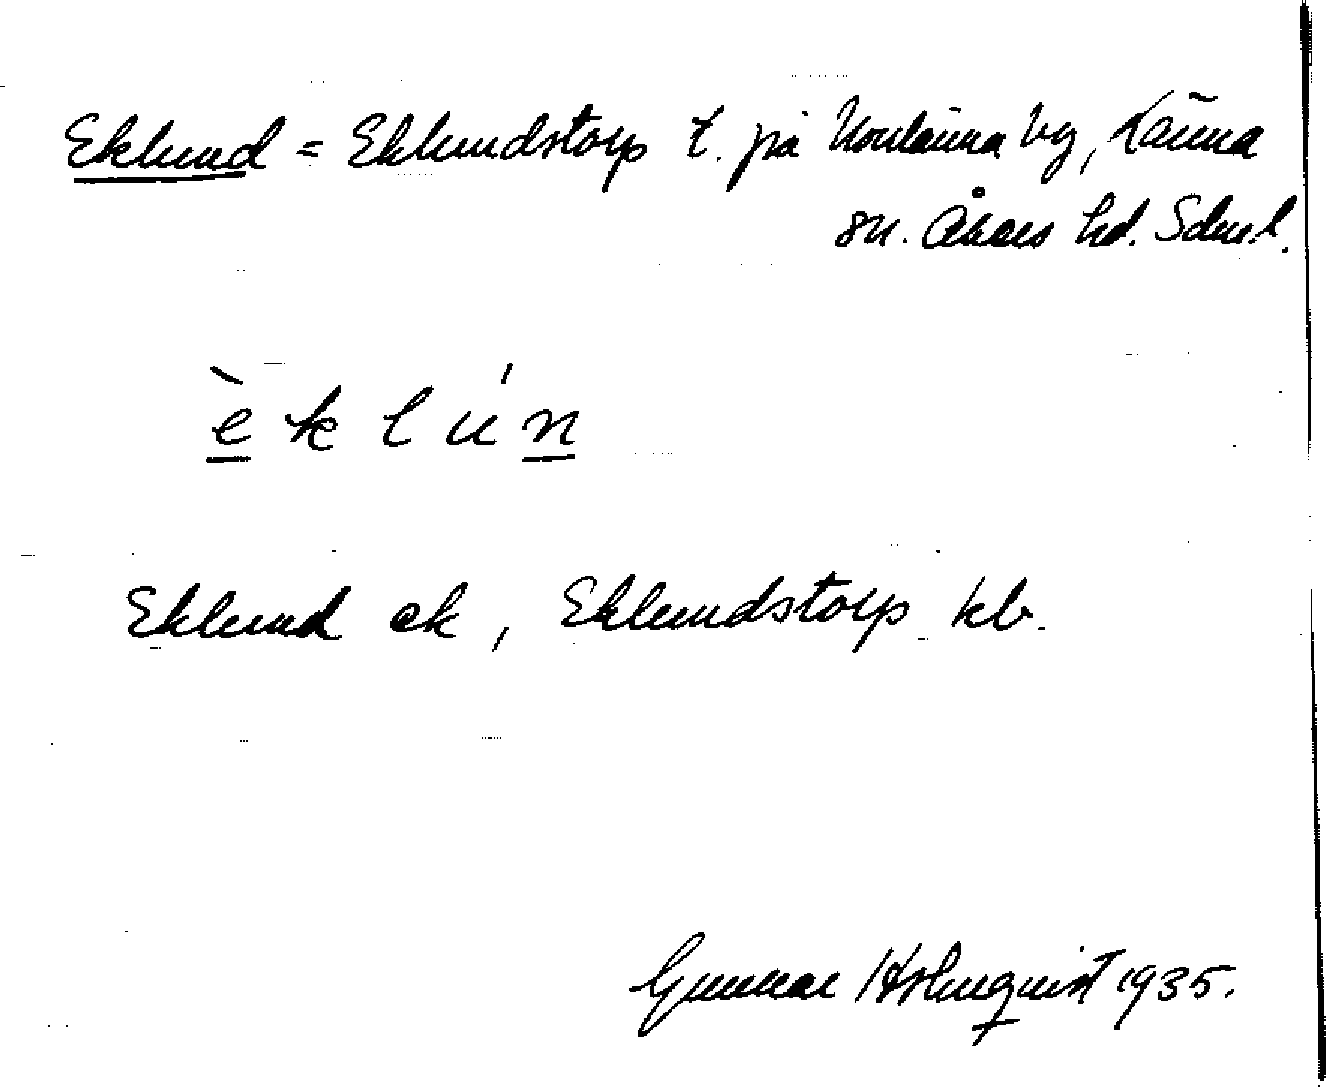 Eklund = Eklundstorp t. på Norrlänna by, Länna
sn. Åkers hd. Södml.
è k l ú n
Eklund ek, Eklundstorp kb.
Gunnar Holmquist 1935.